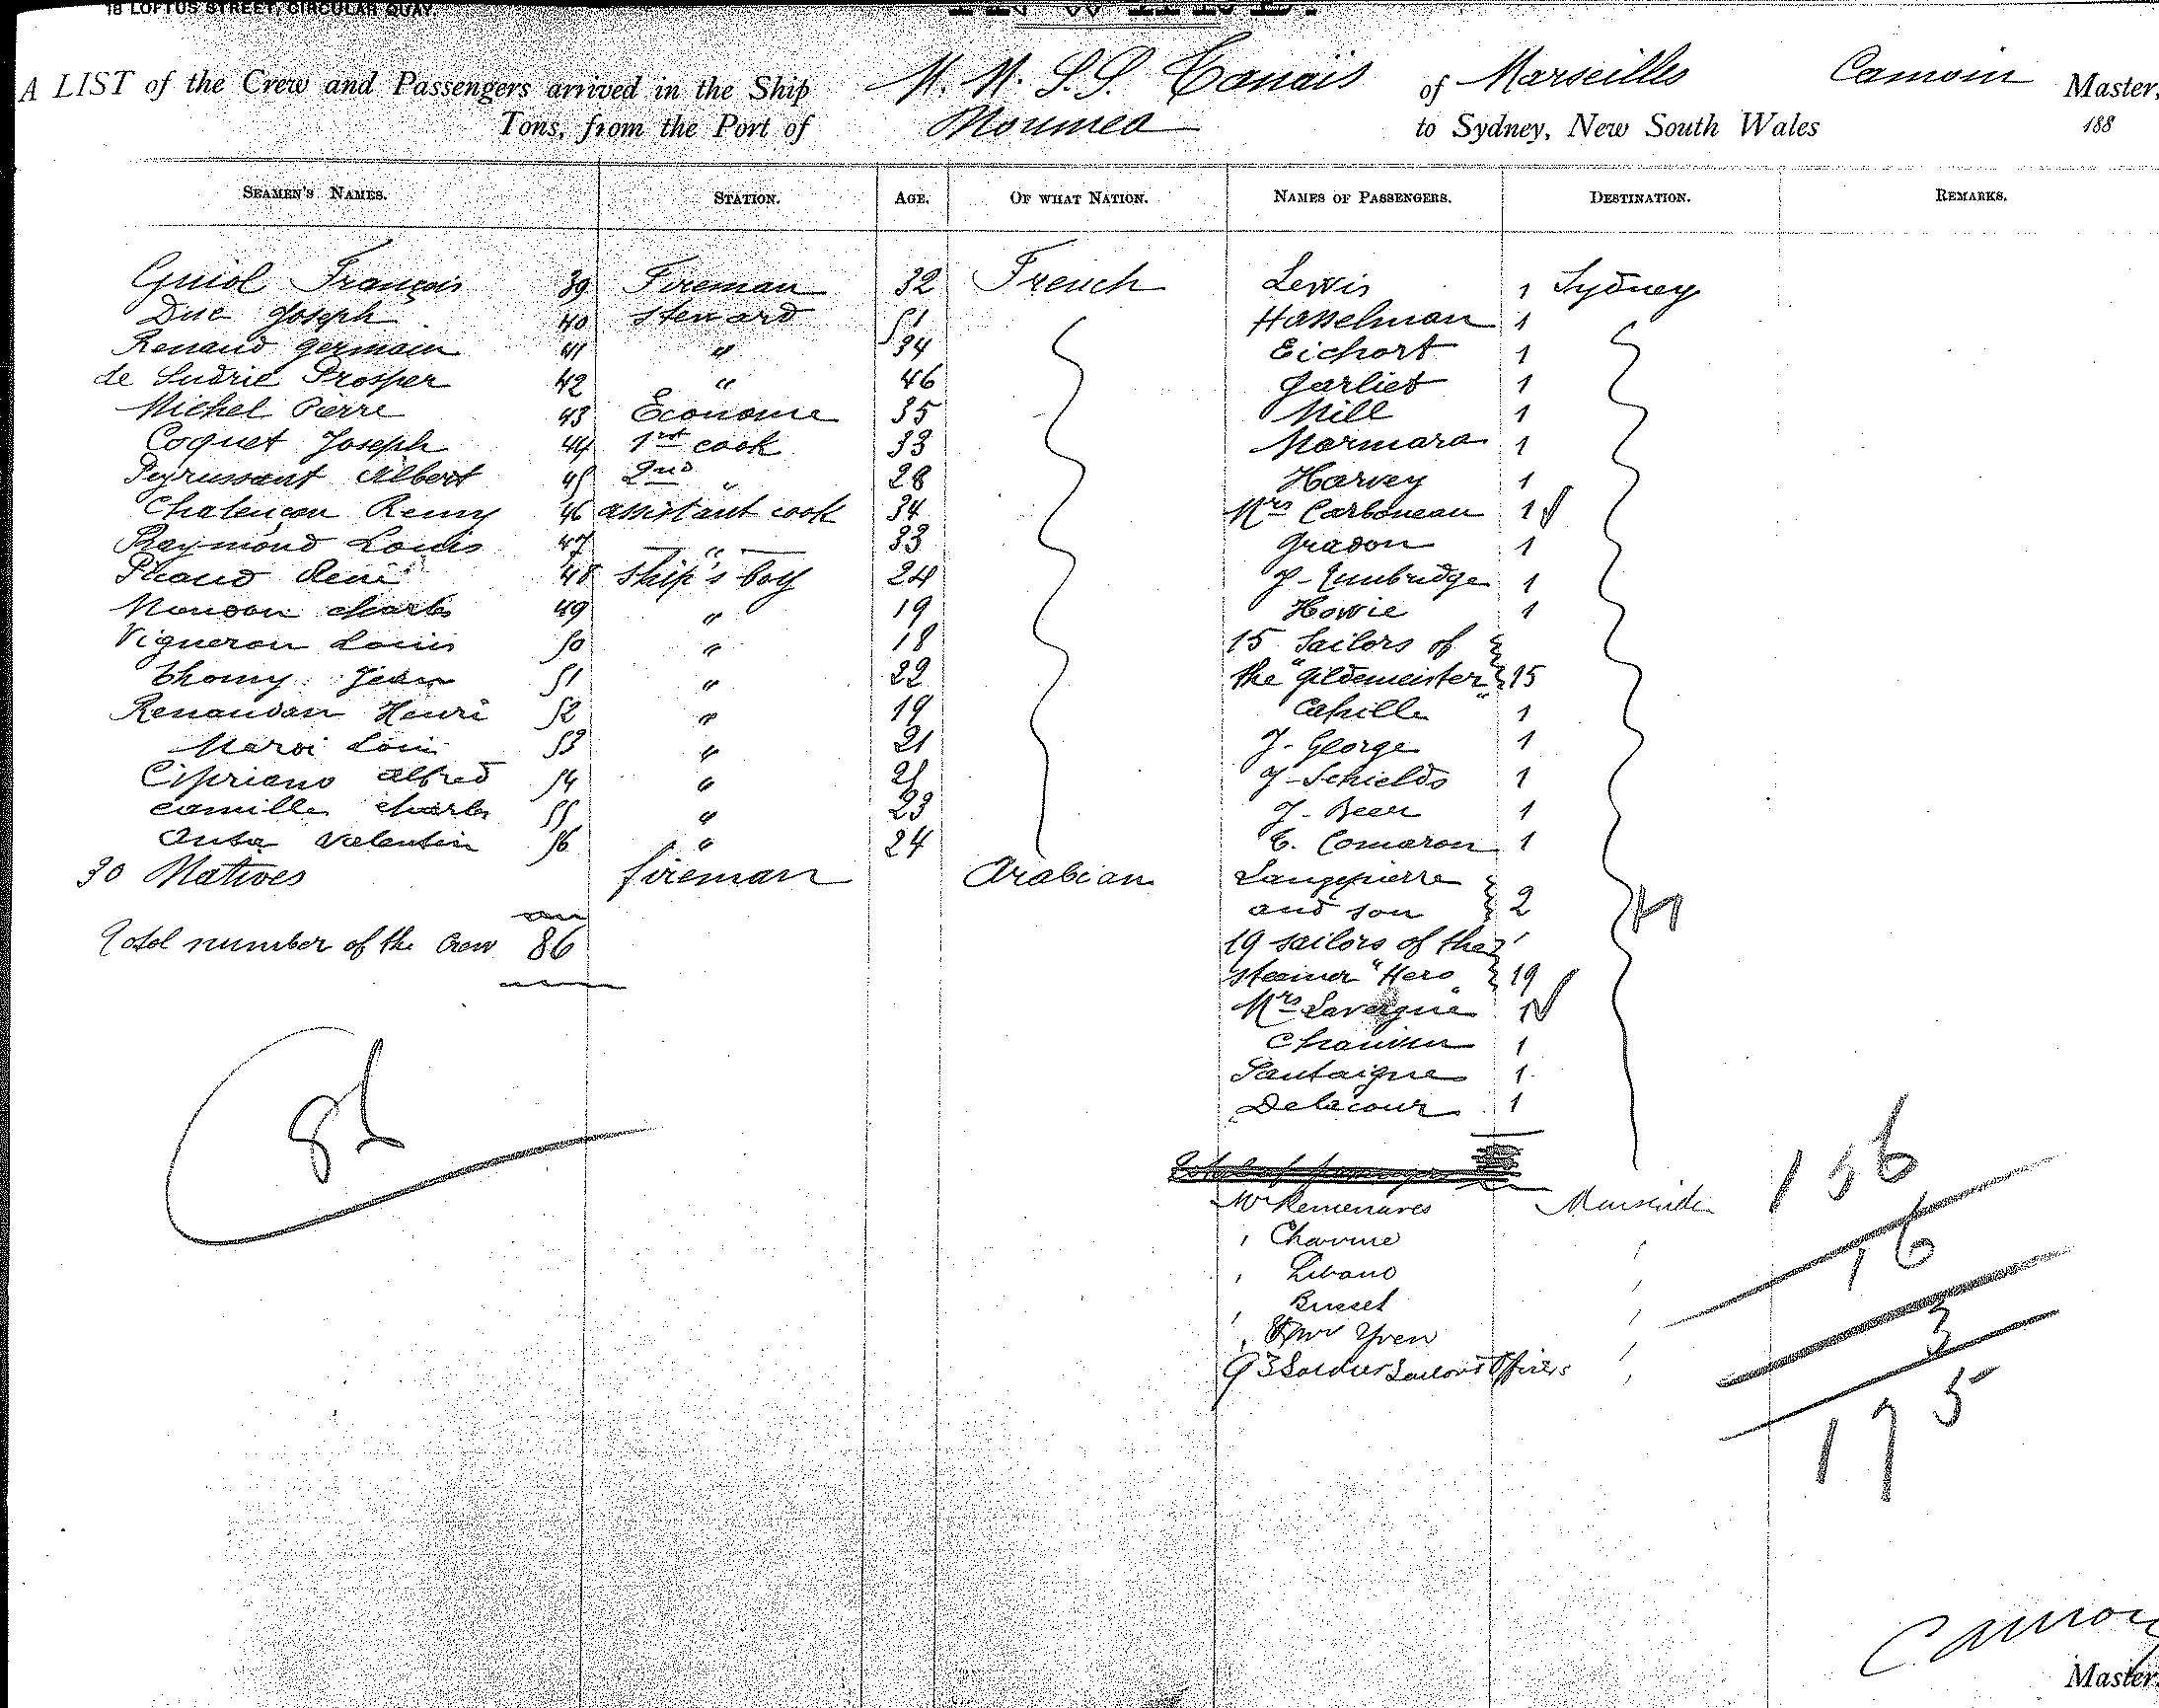 18 LOFTUS STREET, CIRCULAR QUAY.
A LIST of the Crew and Passengers arrived in the Ship M. M. S.S. Tanais of Marseilles Camoin Master,
Tons, from the Port of Noumea to Sydney, New South Wales 188
SEAMEN'S NAMES. STATION. AGE. OF WHAT NATION. NAMES OF PASSENGERS. DESTINATION. REMARKS.
Guiol François 39 Fireman 32 French Lewis 1 Sydney
Duc Joseph 40 Steward 51 Hasselman 1
Renaud germain 41 " 34 Eichort 1
de Sudrie Prosper 42 " 46 Garliet 1
Michel Pierre 43 Econome 35 Mill 1
Coquet Joseph 44 1st cook 33 Marmara 1
Peyrussant Albert 45 2nd " 28 Harvey 1
Chalençon Remy 46 assistant cook 34 Mrs Carboneau 1
Raymond Louis 47 " 33 Gradon 1
René 48 Ship's boy 24 J. 1
charles 49 " 19 Howie 1
Vigneron Louis 50 " 18 15 Sailors of
Thomy Jean 51 " 22 the "Gildemeister" 15
Renaudan Henri 52 " 19 Cahille 1
Maroi Louis 53 " 21 J. George 1
Cipriano alfred 54 " 21 J. Schields 1
camille charles 55 " 23 J. Beer 1
Valentin 56 " 24 C. Comaron 1
30 Natives fireman Arabian Langepierre
and son 2
Total number of the Crew 86 19 sailors of the
steamer "Hero" 19
Mrs Lavergne 1
1
Santaigne 1
Delacour 1
86
Mr Remenares Marseille
" Charme "
" Libano "
" Brussel "
" Yven "
93 Soldiers Sailors Officers "
156
16
3
175
Camoin
Master.